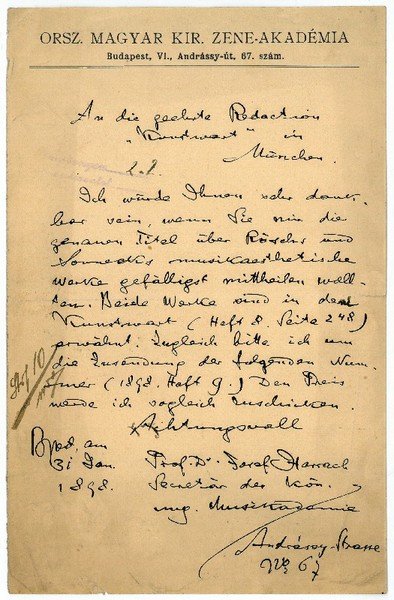 ORSZ. MAGYAR KIR. ZENE-AKADÉMIA
Budapest, VI., Andrássy-út, 67. szám.
An die geehrte Redaction
„Kunstwart" in
München.
Ich würde Ihnen sehr dank-
bar sein, wenn Sie mir die
genauen Titel über Röschs und
Sonnecks musikaesthetische
Werke gefälligst mittheilen woll-
ten. Beide Werke sind in dem
Kunstwart (Heft 8. Seite 248)
erwähnt. Zugleich bitte ich um
die Zusendung der folgenden Num-
mer (1898. Heft 9.) Den Preis
werde ich sogleich zuschicken.
Achtungsvoll
Bpest, am
31 Jan.
1898.
Prof. Dr. Josef Harrach
Secretär der kön.
ung. Musikakademie
Andrássy-Strasse
No 67